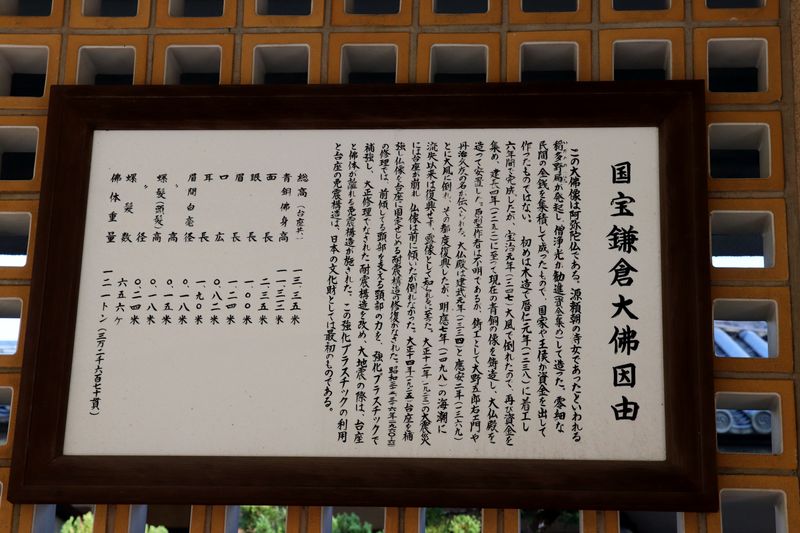 国宝鎌倉大佛因由
この大佛像は阿弥陀仏である。源頼朝の侍女であったといわれる
稲多野局が発起し、僧浄光が勧進(資金集め)して造った。零細な
民間の金銭を集積して成ったもので、国家や王侯が資金を出して
作ったものではない。初めは木造で暦仁元年(一二三八)に着工し
六年間で完成したが、宝治元年(一二四七)大風で倒れたので、再び資金を
集め、建長四年(一二五二)に至って現在の青銅の像を鋳造し、大仏殿を
造って安置した。原型作者は不明であるが、鋳工として大野五郎右エ門や
丹治久友の名が伝へられた。大仏殿は建武元年(一三三四)と應安二年(一三六九)
とに大風で倒れ、その都度復興したが、明應七年(一四九八)の海潮に
流失以来は復興せず、露像として知られるに至った。大正十二年(一九二三)の大震災
には台座が崩れ、仏像は前に傾いたが倒れなかった。大正十四年(一九二五)台座を補
強し仏像を台座に固定せしめる耐震構造の修復がなされた。昭和三五-三六年(一九六〇-六一)
の修理では、前傾してる頭部を支える頸部の力を、強化プラスチックで
補強し、大正修理でなされた耐震構造を改め、大地震の際は、台座
と佛体が離れる免震構造が施された。この強化プラスチックの利用
と台座の免震構造は、日本の文化財としては最初のものである。
総高(台座共) 一三・三五米
青銅佛身高 一一・三一二米
面長 二・三五米
眼長 一・〇〇米
眉長 一・二四米
口広 〇・八二米
耳長 一・九〇米
眉間白毫径 〇・一八米
〃 高 〇・一五米
螺髪(頭髪)高 〇・一八米
〃 径 〇・二四米
螺髪数 六五六ヶ
佛体重量 一二一トン(三万二千六百七十貫)